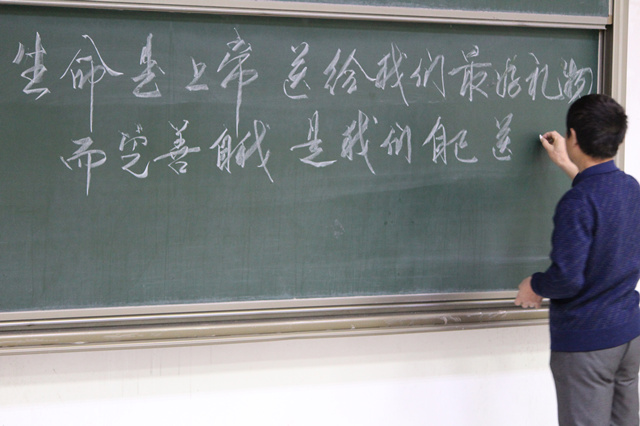 生命是上帝送给我们最好礼物
而完善自我是我们自己送